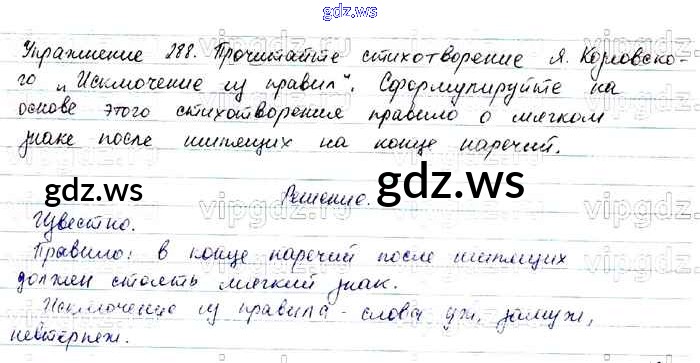 gdz.ws
Упражнение 288. Прочитайте стихотворение Я. Козловско-
го „Исключение из правил“. Сформулируйте на
основе этого стихотворения правило о мягком
знаке после шипящих на конце наречий.
gdz.ws gdz.ws
Решение.
Известно.
Правило: в конце наречий после шипящих
должен стоять мягкий знак.
Исключение из правила - слова уж, замуж,
невтерпеж.